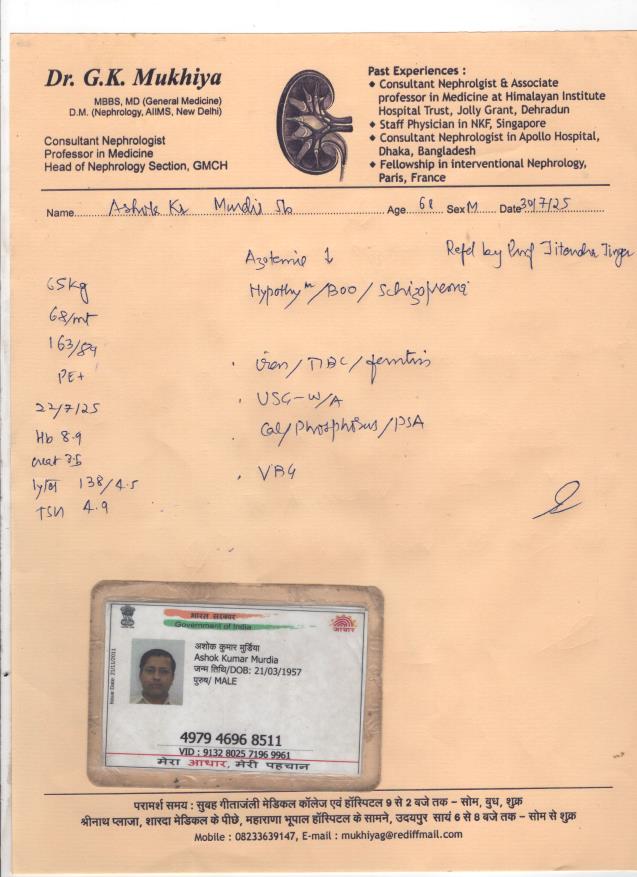 Dr. G.K. Mukhiya
MBBS, MD (General Medicine)
D.M. (Nephrology, AIIMS, New Delhi)
Consultant Nephrologist
Professor in Medicine
Head of Nephrology Section, GMCH
Past Experiences :
◆ Consultant Nephrolgist & Associate
professor in Medicine at Himalayan Institute
Hospital Trust, Jolly Grant, Dehradun
◆ Staff Physician in NKF, Singapore
◆ Consultant Nephrologist in Apollo Hospital,
Dhaka, Bangladesh
◆ Fellowship in interventional Nephrology,
Paris, France
Name Ashok Kr Murdia Age 68 Sex M Date 30/7/25
Azotemia ↓ Refd by Prof Jitendra
65kg
Hypothym/BOO/Schizoprena
68/mt
163/89
PE+
iron/TIBC/ferritin
USG-W/A
22/7/25
Cal/Phosphorus/PSA
Hb 8.9
creat 3.6
VBG
lytes 138/4.5
TSH 4.9
भारत सरकार
Government of India
आधार
Issue Date: 21/11/2011
अशोक कुमार मुर्डिया
Ashok Kumar Murdia
जन्म तिथि/DOB: 21/03/1957
पुरुष/ MALE
4979 4696 8511
VID : 9132 8025 7196 9961
मेरा आधार, मेरी पहचान
परामर्श समय : सुबह गीताजंली मेडिकल कॉलेज एवं हॉस्पिटल 9 से 2 बजे तक – सोम, बुध, शुक्र
श्रीनाथ प्लाजा, शारदा मेडिकल के पीछे, महाराणा भूपाल हॉस्पिटल के सामने, उदयपुर सायं 6 से 8 बजे तक – सोम से शुक्र
Mobile : 08233639147, E-mail : mukhiyag@rediffmail.com